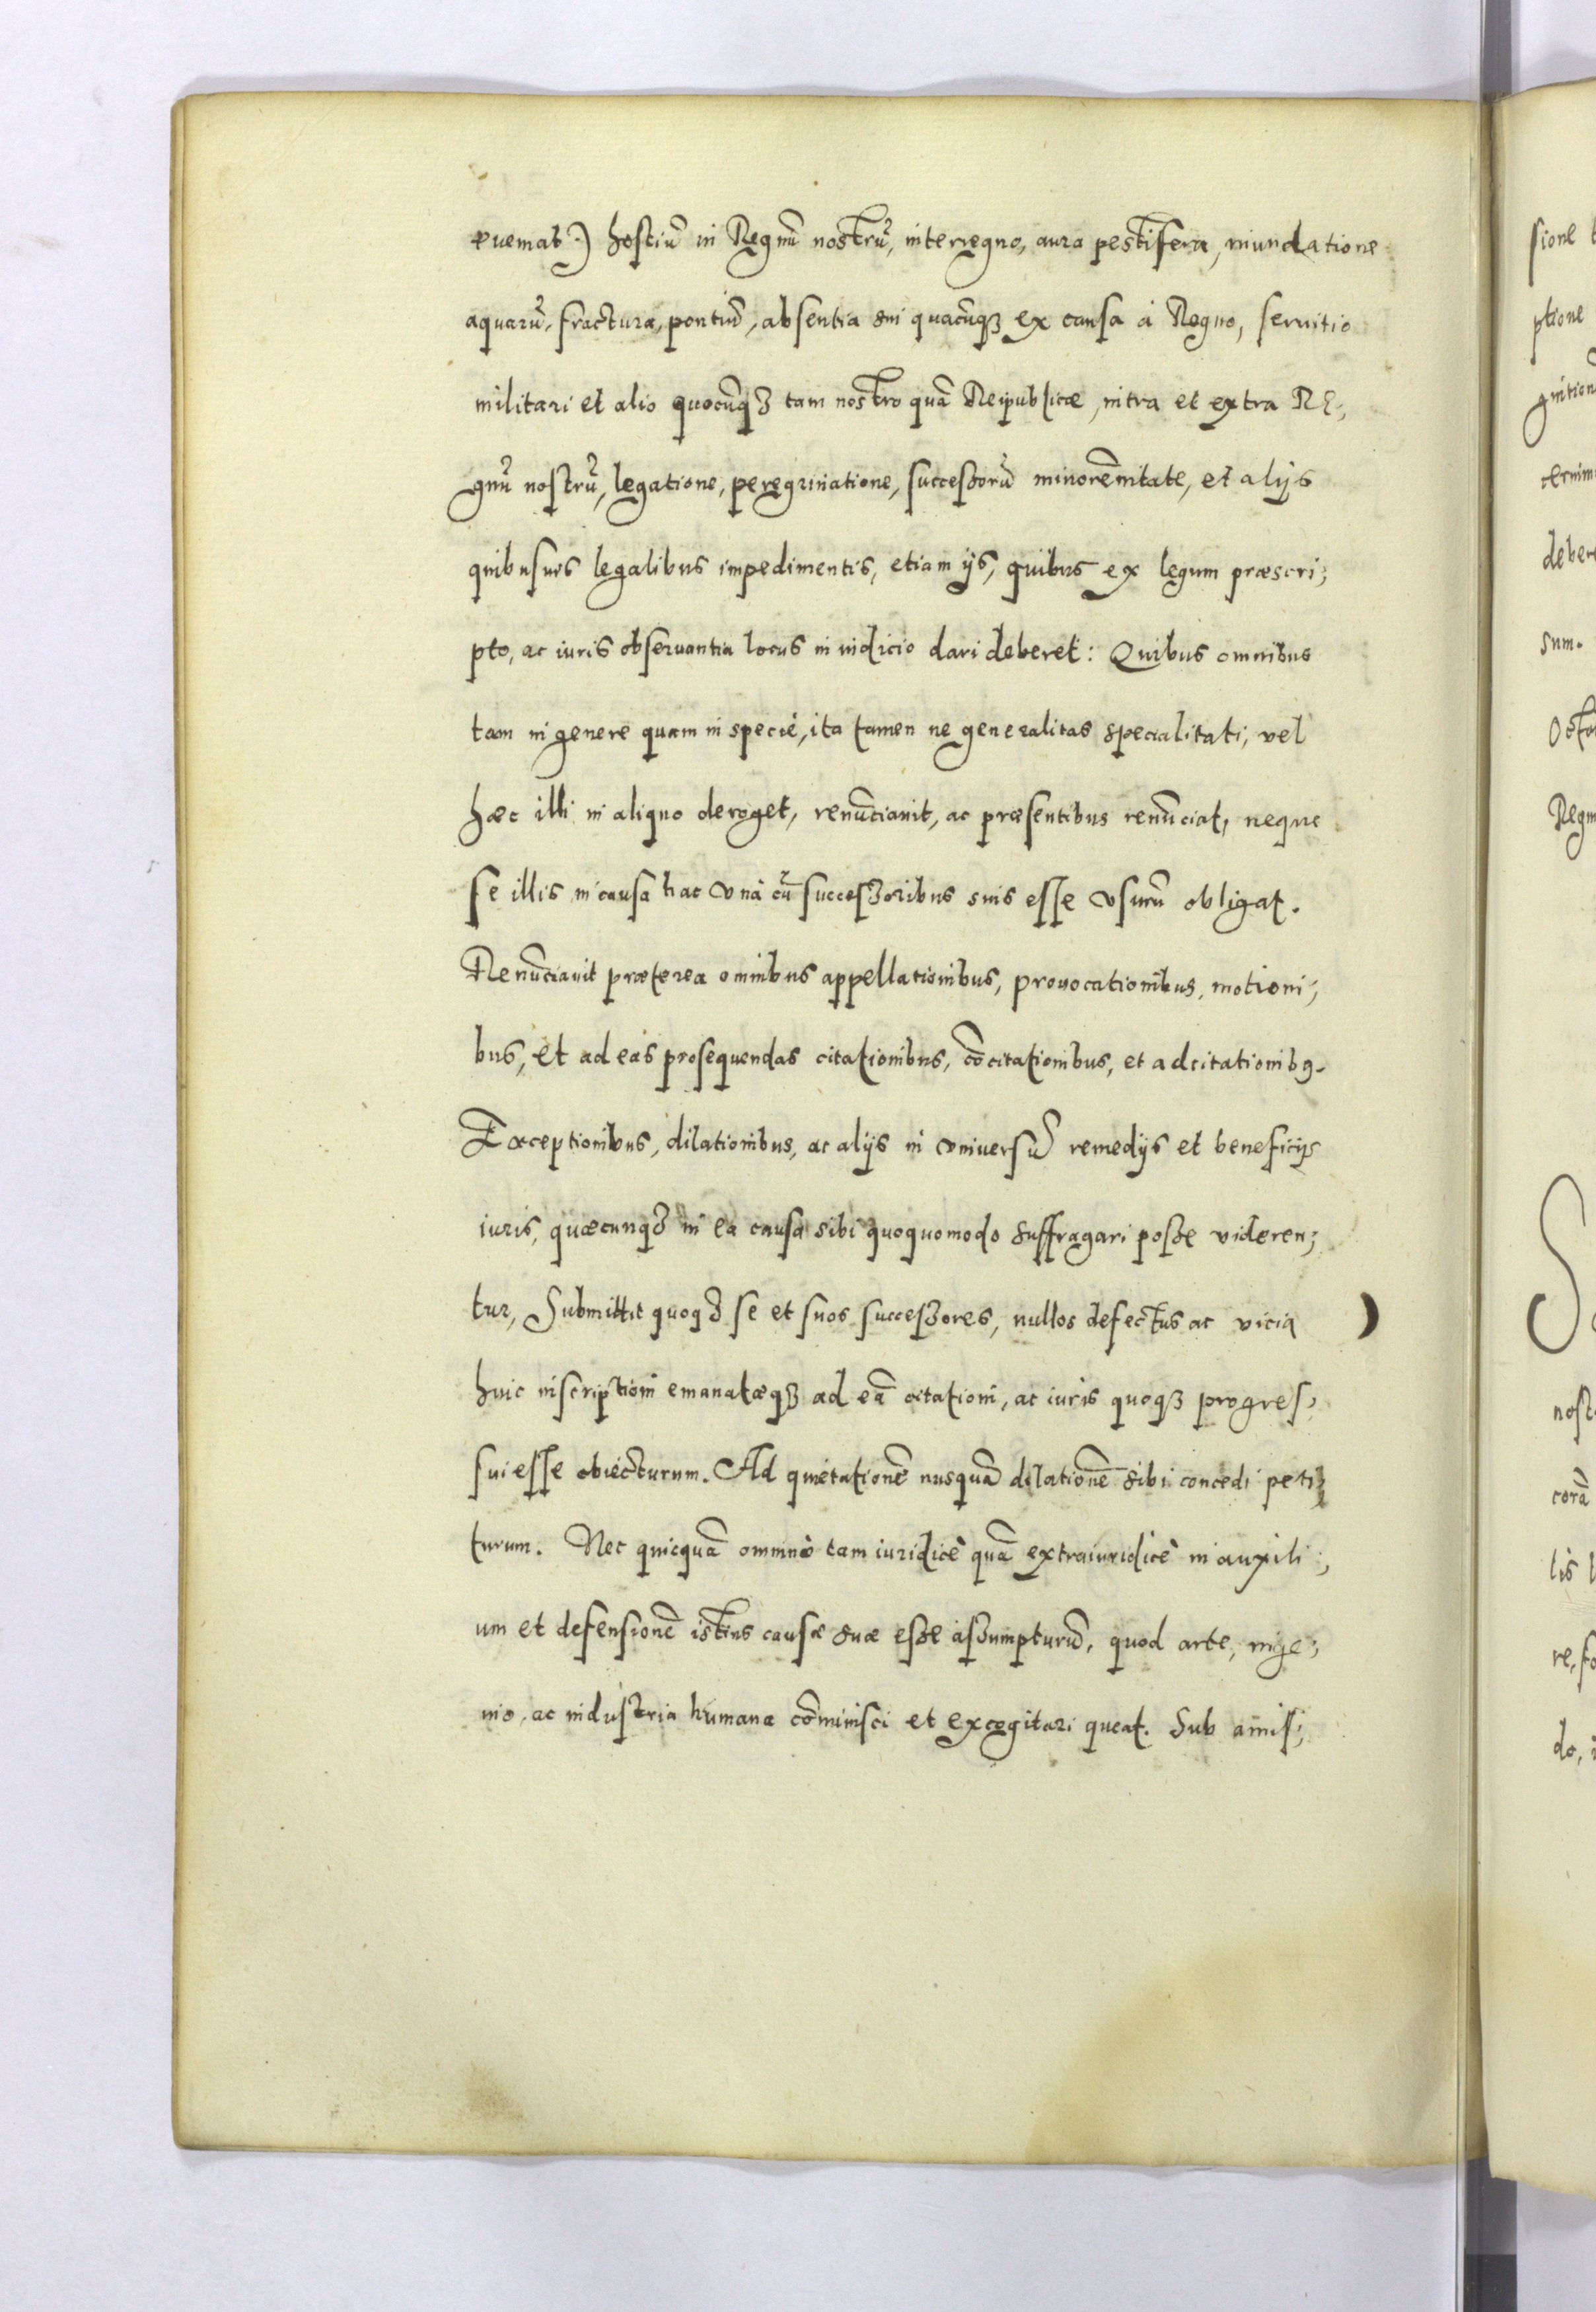 euemat:) hostiũ in Regnũ nostrũ, interregno, aura pestifera, inundatione
aquarũ, fractura, pontiũ, absentia sui quacũqʒ ex causa à Regno, seruitio
militari et alio quocũqʒ tam nostro quã Reipublicæ, intra et extra Re;
gnũ nostrũ, legatione, peregrinatione, successorũ minorẽnitate, et alijs
quibusuis legalibus impedimentis, etiam ijs, quibus ex legum præscri;
pto, ac iuris obseruantia locus in iudicio dari deberet: Quibus omnibus
tam in genere quam in specie, ita tamen ne generalitas specialitati, vel
hæc illi in aliquo deroget, renũciauit, ac præsentibus renũciat, neque
se illis in causa hac vnà cũ successoribus suis esse vsurũ obligat.
Renũciauit præterea omnibus appellationibus, prouocationibus, motioni;
bus, et ad eas prosequendas citationibus, cõcitationibus, et adcitationibꝰ.
Exceptionibus, dilationibus, ac alijs in vniuersũ remedijs et beneficijs
iuris, quæcunqʒ in ea causa sibi quoquomodo suffragari posse videren;
tur, Submittit quoqʒ se et suos successores, nullos defectus ac vicia
huic inscriptioni emanatæqʒ ad eã citationi, ac iuris quoqʒ progres;
sui esse obiecturum. Ad quietationẽ nusquã dilationẽ sibi concedi peti;
turum. Nec quicquã omninò tam iuridicè quã extraiuridicè in auxili;
um et defensionẽ istius causæ suæ esse assumpturũ, quod arte, inge;
nio, ac industria humana cõminisci et excogitari queat. Sub amis;